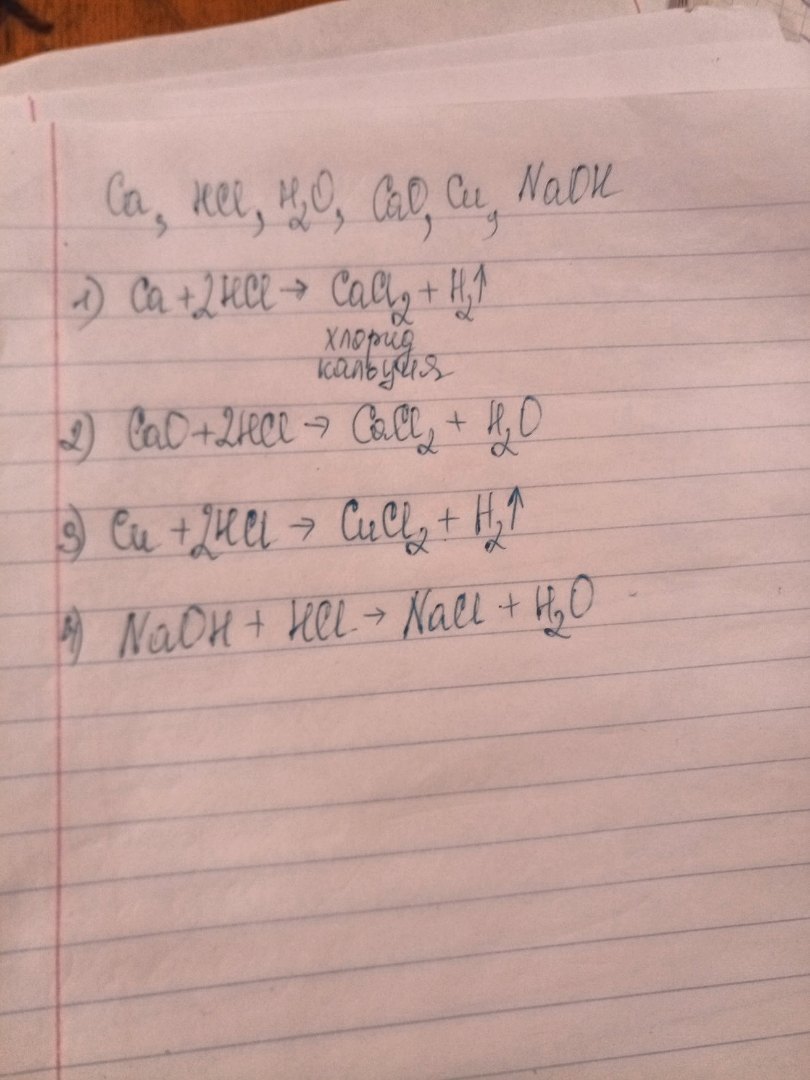 Ca, HCl, H₂O, CaO, Cu, NaOH
1) Ca + 2HCl → CaCl₂ + H₂↑
хлорид
кальция
2) CaO + 2HCl → CaCl₂ + H₂O
3) Cu + 2HCl → CuCl₂ + H₂↑
4) NaOH + HCl → NaCl + H₂O